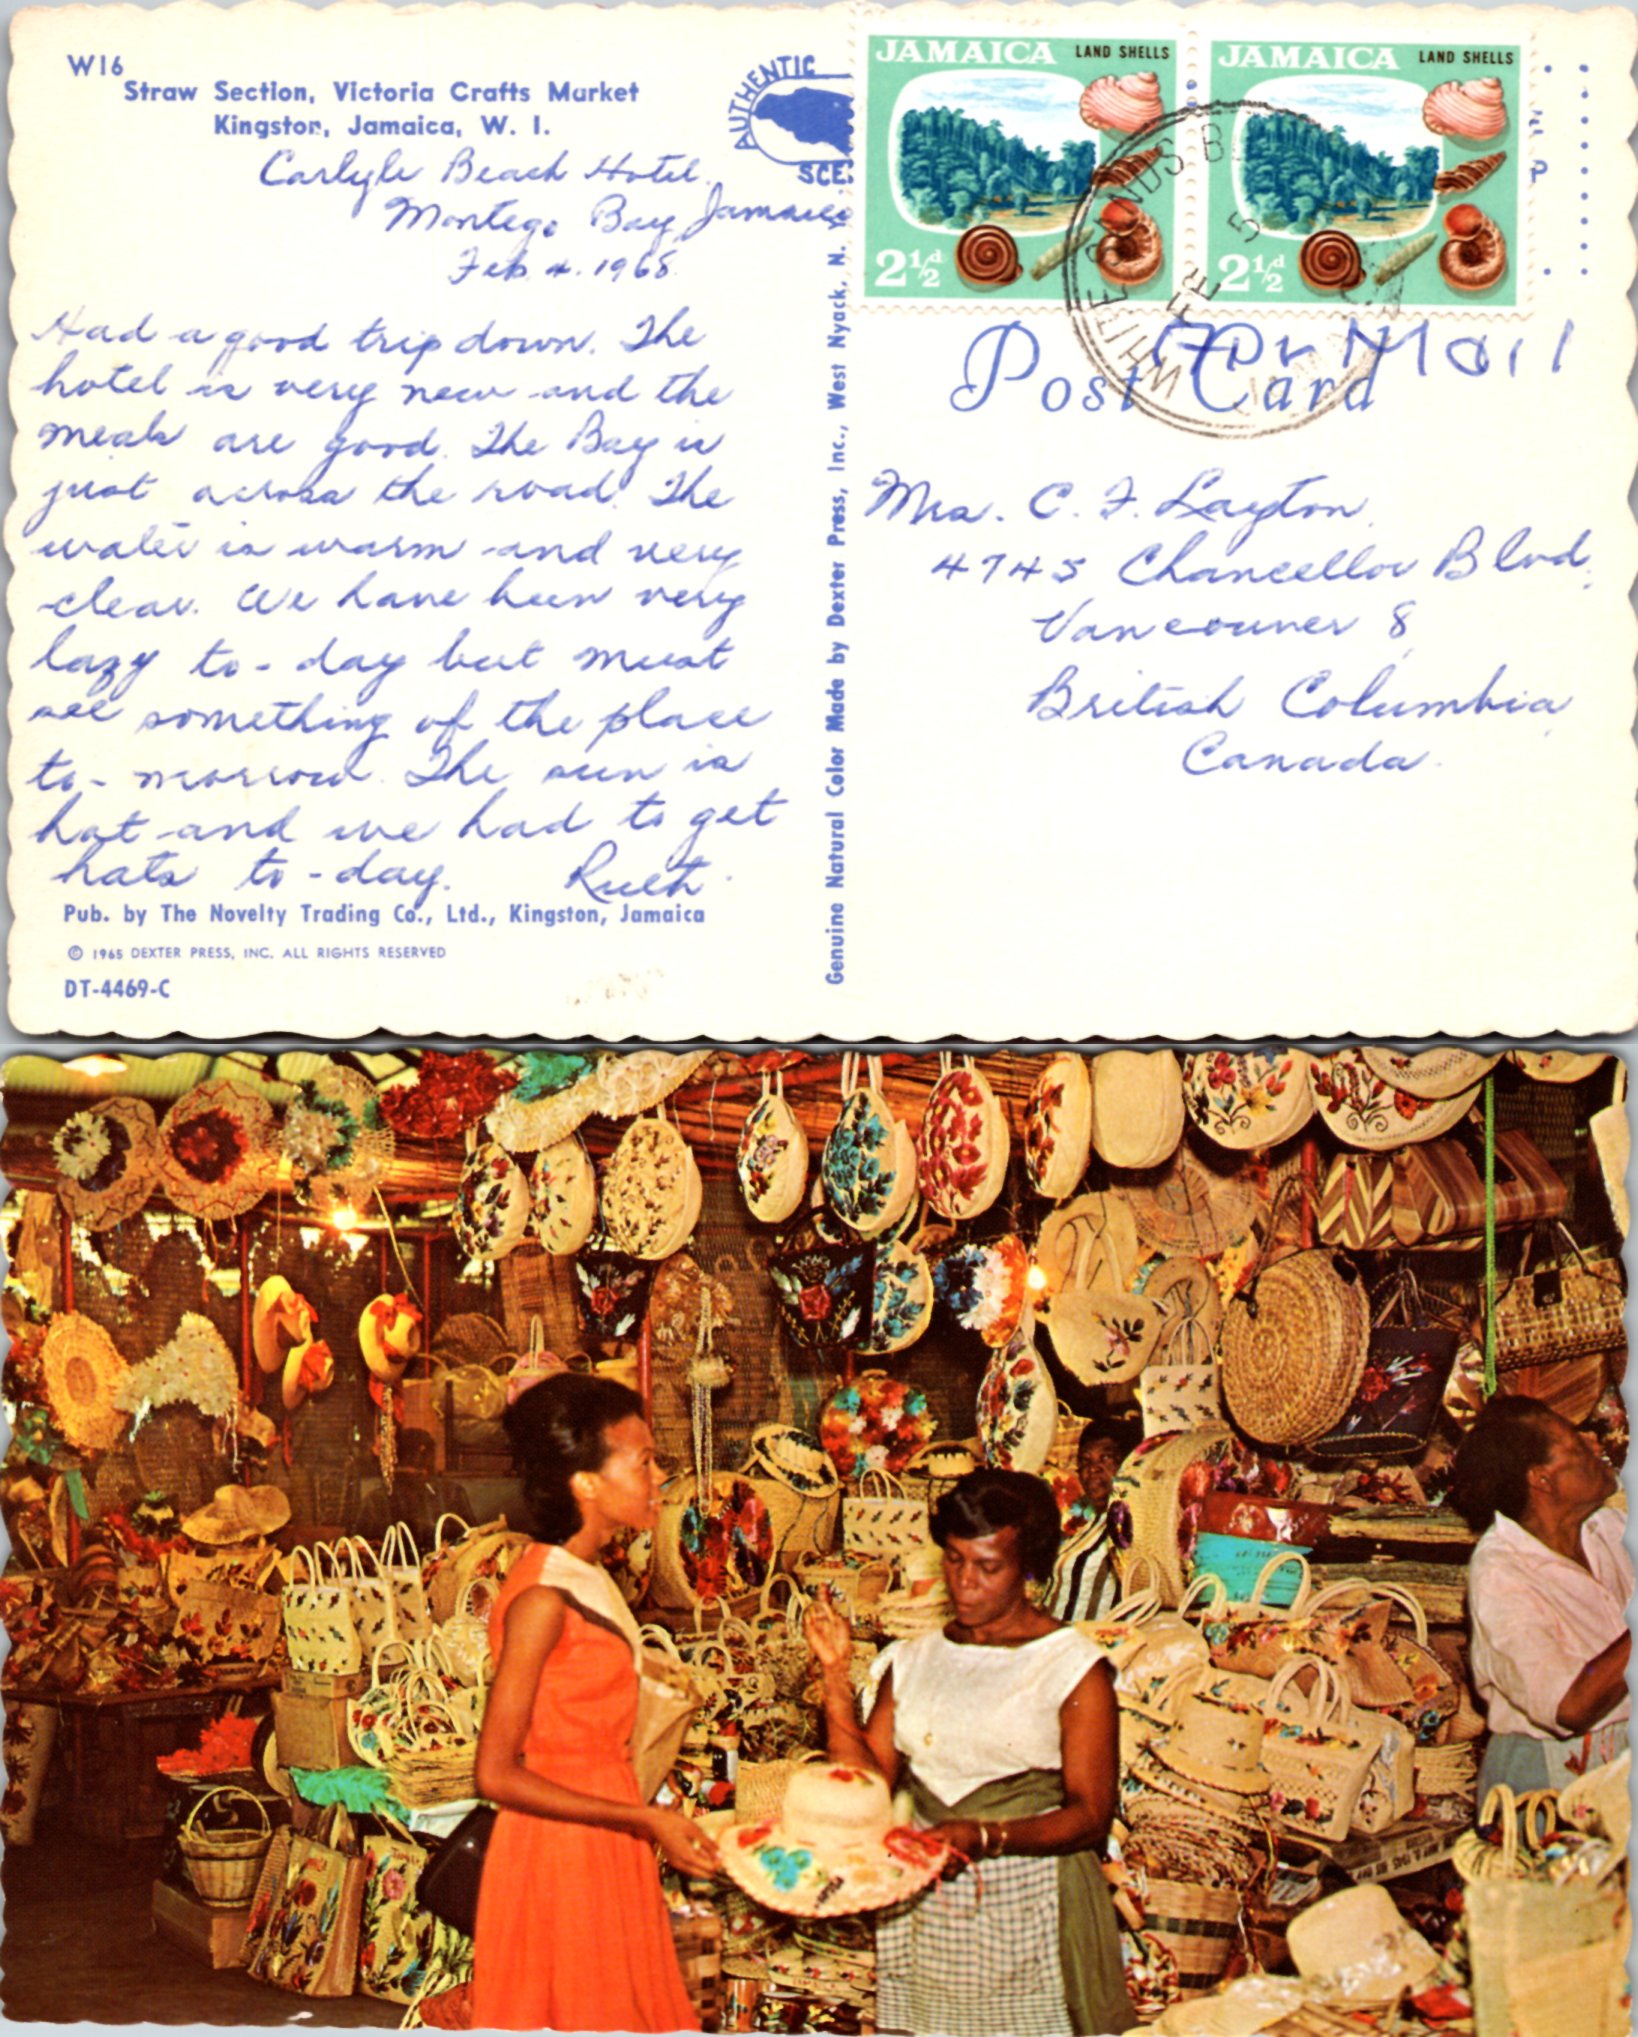 W16
Straw Section, Victoria Crafts Market
Kingston, Jamaica, W. I.
AUTHENTIC
SCE
Carlyle Beach Hotel.
Montego Bay, Jamaica
Feb. 4. 1968.
Had a good trip down. The
hotel is very new and the
meals are good. The Bay is
just across the road. The
water is warm and very
clear. We have been very
lazy to-day but must
see something of the place
to-morrow. The sun is
hot and we had to get
hats to-day. Ruth.
Pub. by The Novelty Trading Co., Ltd., Kingston, Jamaica
© 1965 DEXTER PRESS, INC. ALL RIGHTS RESERVED
DT-4469-C
Genuine Natural Color Made by Dexter Press, Inc., West Nyack, N. Y.
JAMAICA LAND SHELLS
2½d
JAMAICA LAND SHELLS
2½d
WHITE SANDS B
FE 5
Air Mail
Post Card
Mrs. C. F. Layton.
4745 Chancellor Blvd.
Vancouver 8,
British Columbia,
Canada.